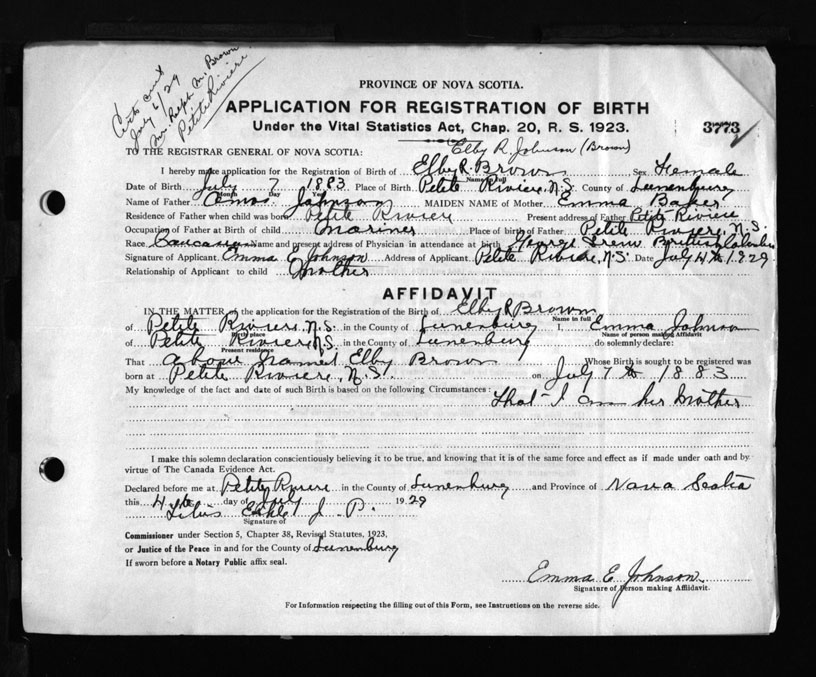 Certs sent
July 6/29
Mr. Ralph M. Brown
Petite Riviere
PROVINCE OF NOVA SCOTIA.
APPLICATION FOR REGISTRATION OF BIRTH
Under the Vital Statistics Act, Chap. 20, R. S. 1923.
3773
Elby R. Johnson (Brown)
TO THE REGISTRAR GENERAL OF NOVA SCOTIA:
I hereby make application for the Registration of Birth of Elby R. Brown Sex Female
Name in full
Date of Birth July 7 1883 Place of Birth Petite Riviere, N.S. County of Lunenburg
Month Day Year
Name of Father Amos Johnson MAIDEN NAME of Mother Emma Baker
Residence of Father when child was born Petite Riviere Present address of Father Petite Riviere
Occupation of Father at Birth of child Mariner Place of birth of Father Petite Riviere, N.S.
Race Caucasian Name and present address of Physician in attendance at birth George Drew British Columbia
Signature of Applicant Emma E Johnson Address of Applicant Petite Riviere, N.S. Date July 4th 1929
Relationship of Applicant to child Mother
AFFIDAVIT
IN THE MATTER of the application for the Registration of the Birth of Elby R Brown
Name in full
of Petite Riviere, N.S. in the County of Lunenburg I, Emma Johnson
Birth place Name of person making Affidavit
of Petite Riviere N.S. in the County of Lunenburg do solemnly declare:
Present residence
That above named Elby Brown Whose Birth is sought to be registered was
born at Petite Riviere, N.S. on July 7th 1883
My knowledge of the fact and date of such Birth is based on the following Circumstances:
That I am her Mother
I make this solemn declaration conscientiously believing it to be true, and knowing that it is of the same force and effect as if made under oath and by
virtue of The Canada Evidence Act.
Declared before me at Petite Riviere in the County of Lunenburg and Province of Nova Scotia
this 4th day of July 1929
J. P.
Signature of
Commissioner under Section 5, Chapter 38, Revised Statutes, 1923,
or Justice of the Peace in and for the County of Lunenburg
If sworn before a Notary Public affix seal.
Emma E. Johnson
Signature of Person making Affidavit.
For Information respecting the filling out of this Form, see Instructions on the reverse side.